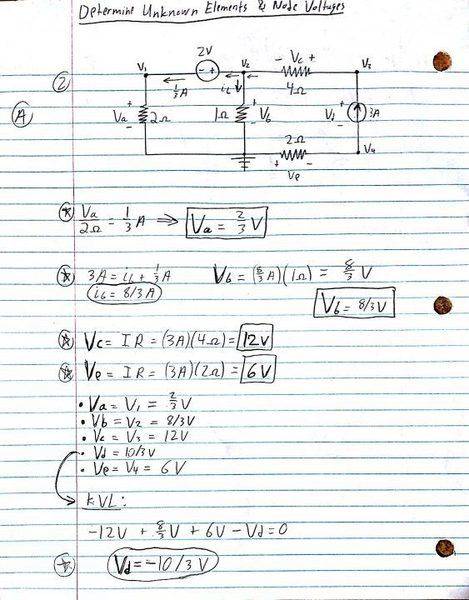 Determine Unknown Elements & Node Voltages
2V
V₁ - + V₂ - Vc + V₃
② 1/3 A i₆ 4Ω
Ⓐ + Va - 2Ω 1Ω + Vb - + Vd - 3A
2Ω V₄
+ Ve -
Va/2Ω = 1/3 A ⇒ Va = 2/3 V
3A = i₆ + 1/3 A Vb = (8/3 A)(1Ω) = 8/3 V
i₆ = 8/3 A Vb = 8/3 V
Vc = IR = (3A)(4Ω) = 12V
Ve = IR = (3A)(2Ω) = 6V
• Va = V₁ = 2/3 V
• Vb = V₂ = 8/3 V
• Vc = V₃ = 12V
• Vd = 10/3 V
• Ve = V₄ = 6V
KVL:
-12V + 8/3 V + 6V - Vd = 0
Vd = -10/3 V